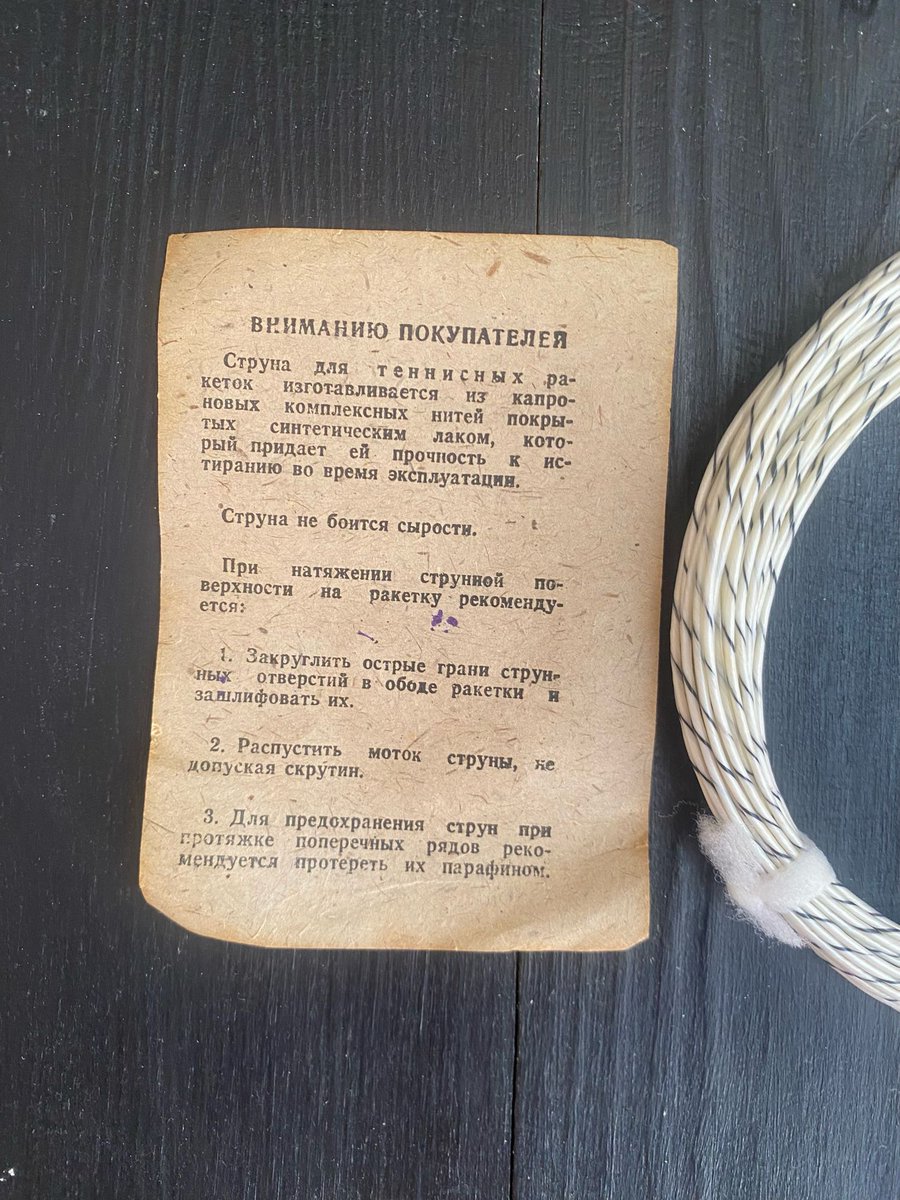 ВНИМАНИЮ ПОКУПАТЕЛЕЙ
Струна для теннисных ра-
кеток изготавливается из капро-
новых комплексных нитей покры-
тых синтетическим лаком, кото-
рый придает ей прочность к ис-
тиранию во время эксплуатации.
Струна не боится сырости.
При натяжении струнной по-
верхности на ракетку рекоменду-
ется:
1. Закруглить острые грани струн-
ных отверстий в ободе ракетки и
зашлифовать их.
2. Распустить моток струны, не
допуская скрутин.
3. Для предохранения струн при
протяжке поперечных рядов реко-
мендуется протереть их парафином.